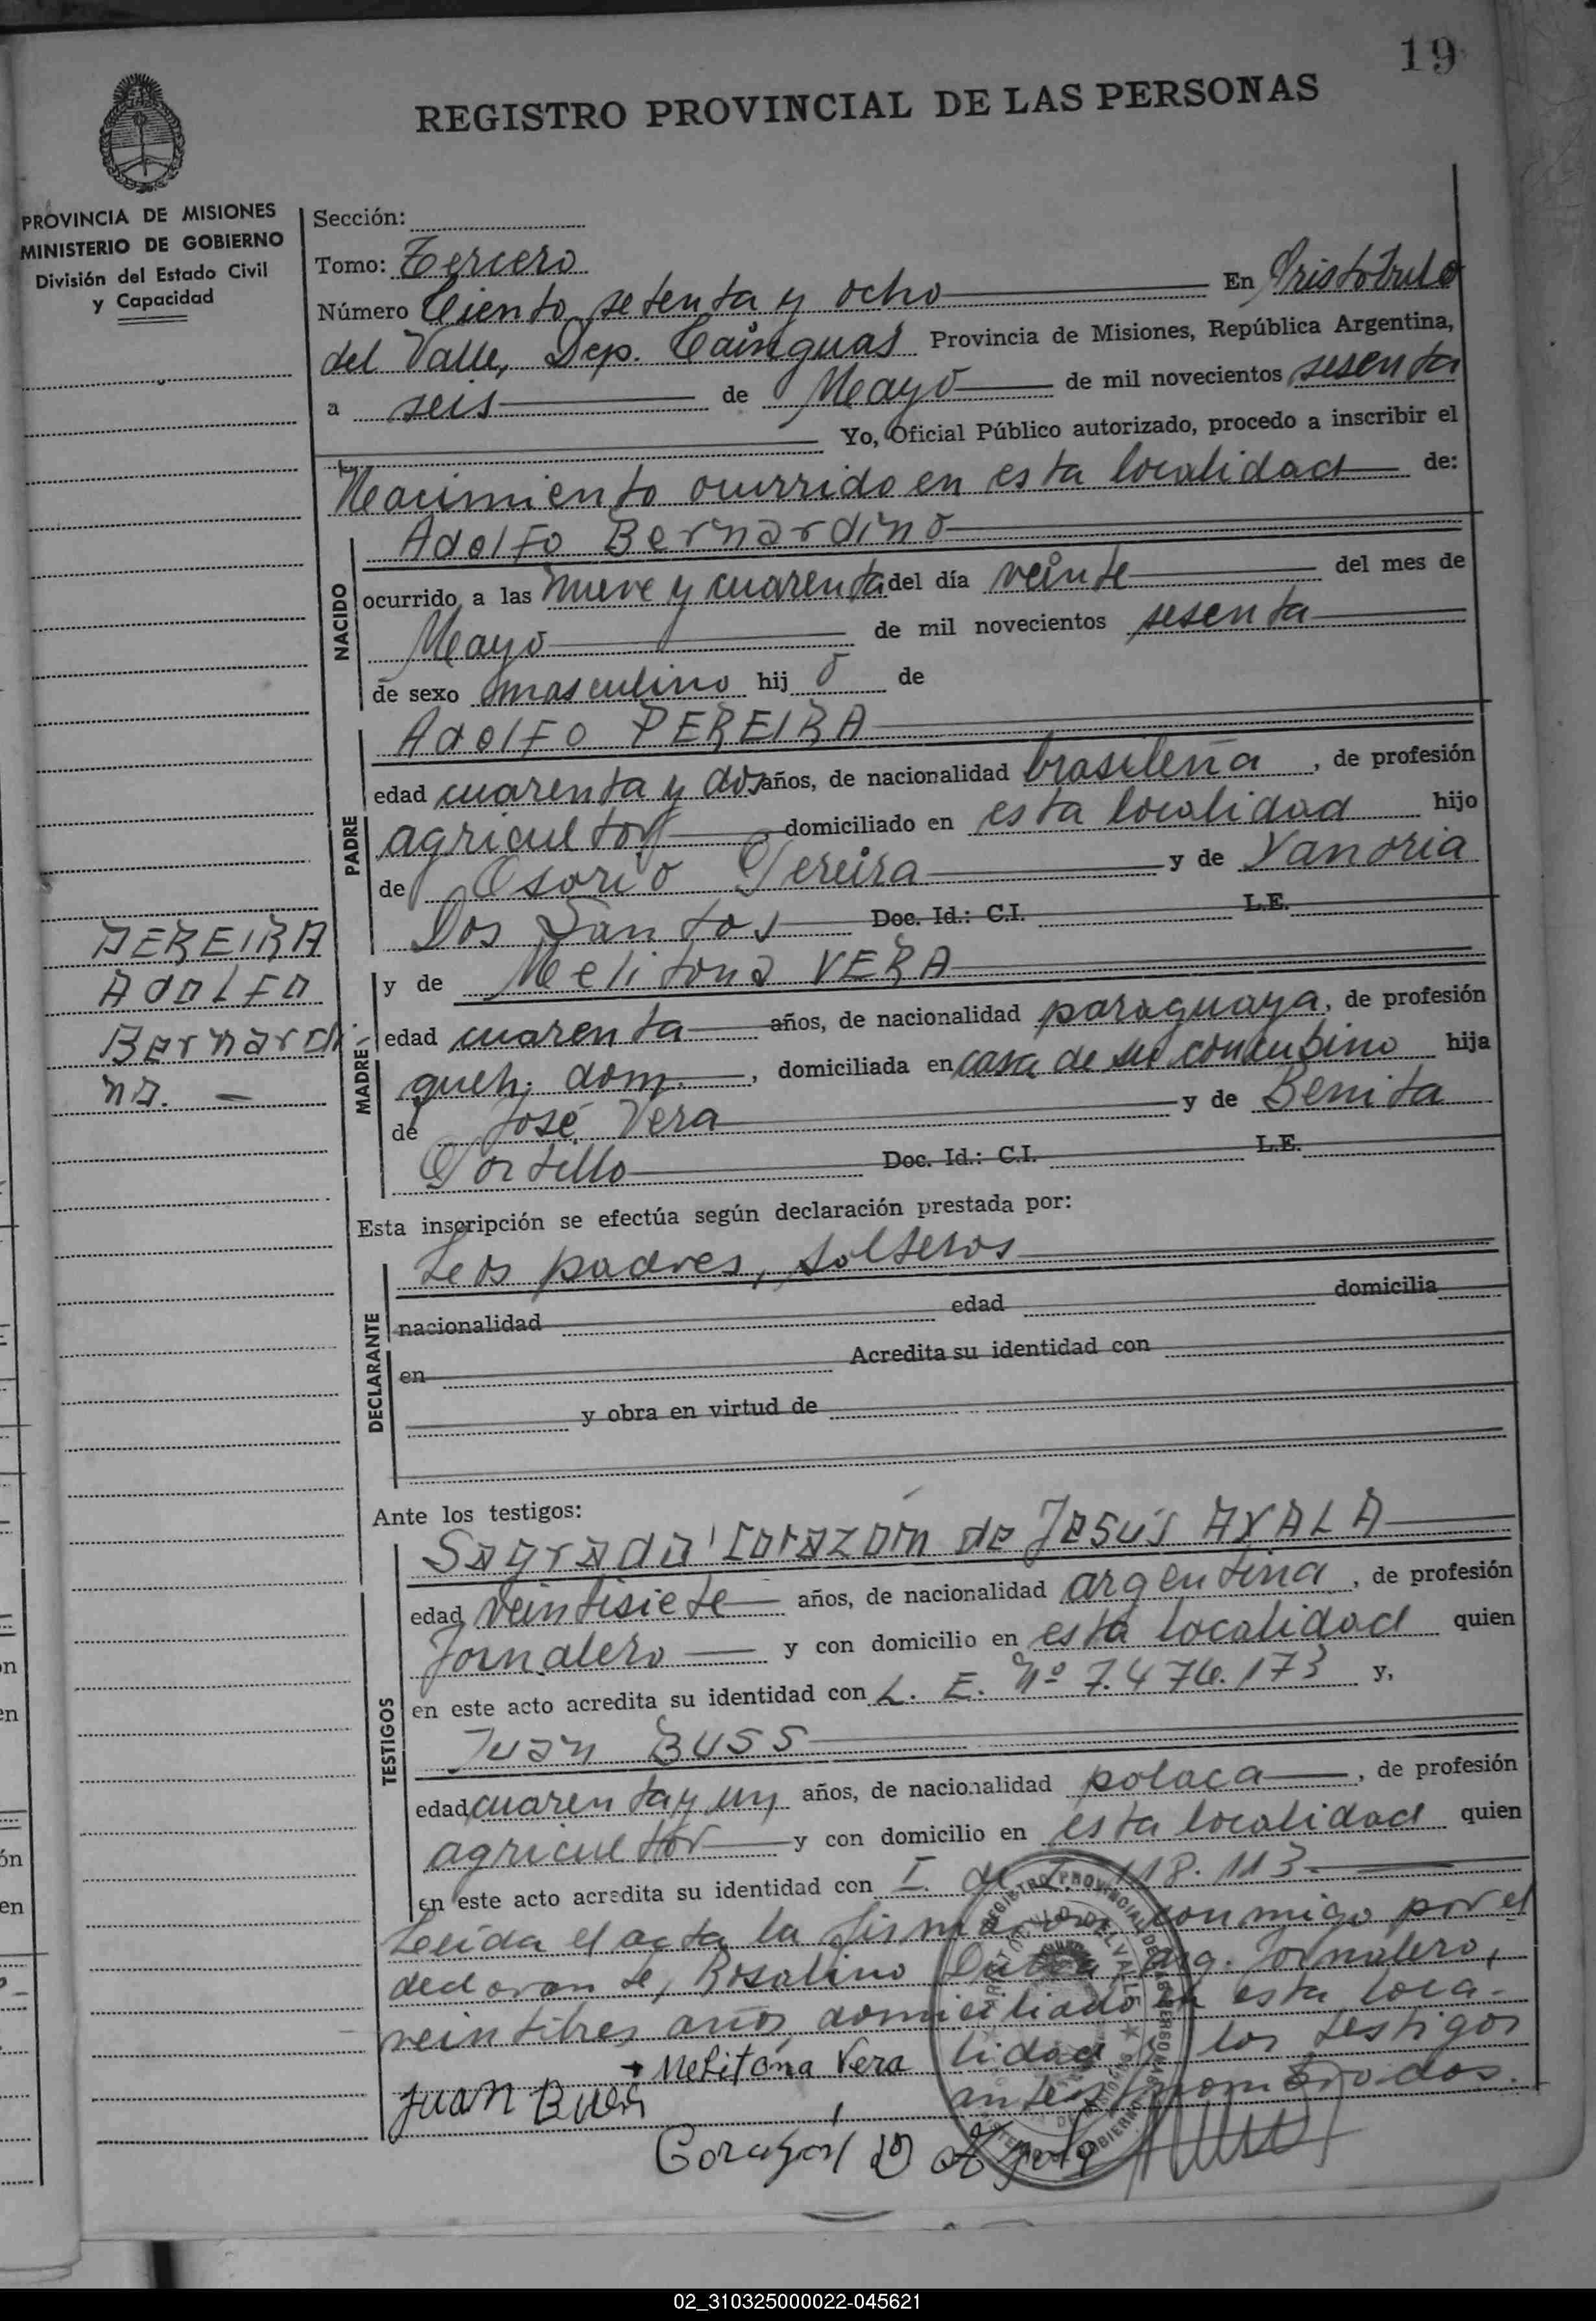 19
REGISTRO PROVINCIAL DE LAS PERSONAS
PROVINCIA DE MISIONES
MINISTERIO DE GOBIERNO
División del Estado Civil
y Capacidad
Sección:
Tomo: Tercero
Número Ciento setenta y ocho En Aristóbulo
del Valle, Dep. Cainguas Provincia de Misiones, República Argentina,
a seis de Mayo de mil novecientos sesenta
Yo, Oficial Público autorizado, procedo a inscribir el
Nacimiento ocurrido en esta localidad de:
NACIDO
Adolfo Bernardino
ocurrido a las nueve y cuarenta del día veinte del mes de
Mayo de mil novecientos sesenta
de sexo masculino hij o de
PADRE
Adolfo PEREIRA
edad cuarenta y dos años, de nacionalidad brasileña, de profesión
agricultor, domiciliado en esta localidad hijo
de Osorio Pereira y de Vanoria
Dos Santos Doc. Id.: C.I. L.E.
PEREIRA
ADOLFO
Bernardi-
no. —
MADRE
y de Melitona VERA
edad cuarenta años, de nacionalidad paraguaya, de profesión
queh. dom., domiciliada en casa de su concubino hija
de José Vera y de Benita
Portillo Doc. Id.: C.I. L.E.
Esta inscripción se efectúa según declaración prestada por:
DECLARANTE
Los padres, solteros
nacionalidad edad domicilia
en Acredita su identidad con
y obra en virtud de
Ante los testigos:
TESTIGOS
Sagrado Corazón de Jesús AYALA
edad veintisiete años, de nacionalidad argentina, de profesión
Jornalero y con domicilio en esta localidad quien
en este acto acredita su identidad con L. E. Nº 7.476.173 y,
Juan BUSS
edad cuarenta y un años, de nacionalidad polaca, de profesión
agricultor y con domicilio en esta localidad quien
en este acto acredita su identidad con I. 118.113.
Leída el acta la firman conmigo por el
declarante, Rosalino arg. Jornalero,
veintitres años domiciliado en esta loca-
lidad y los testigos
antes nombrados.
Melitona Vera
Juan Buss
Corazón D Ayala
REGISTRO PROVINCIAL DE LAS PERSONAS
02_310325000022-045621